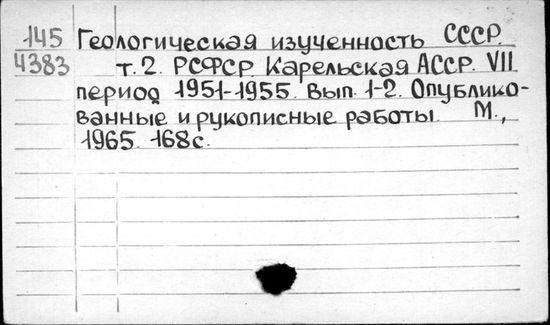 145 Геологическая изученность СССР.
4383 т. 2. РСФСР. Карельская АССР. VII
период 1951-1955. Вып. 1-2. Опублико-
ванные и рукописные работы. М.,
1965. 168с.